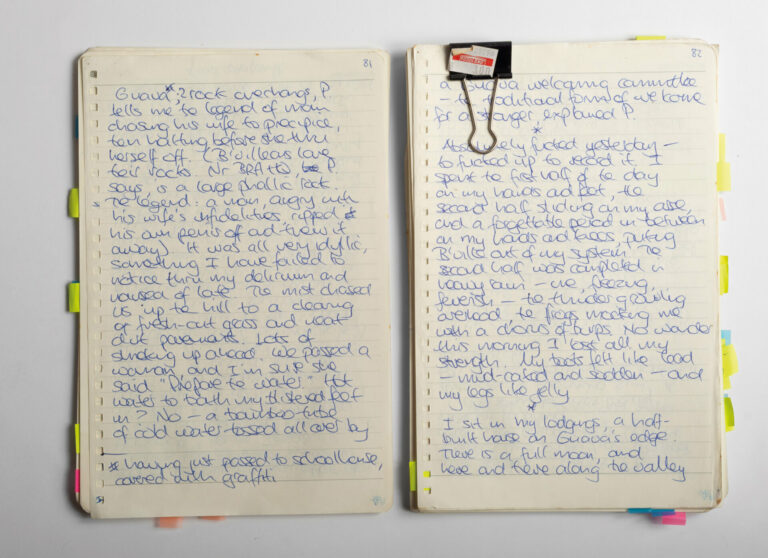 81
Guava*, 2 rock overhangs, P.
tells me the legend of man
chasing his wife to precipice,
then halting before she threw
herself off. (B'villeans love
their rocks. Nr BRATTO, P.
says, is a large phallic rock.
The legend: a man, angry with
his wife's infidelities ripped
his own penis off and threw it
away.) It was all very idyllic,
something I have failed to
notice thru my delirium and
nausea of late. The mist chased
us up the hill to a clearing
of fresh-cut grass and neat
dirt pavements. Lots of
shrieking up ahead. We passed a
woman, and I'm sure she
said "Prepare the water." Hot
water to bath my blistered feet
in? No – a bamboo-tube
of cold water tossed all over by
* having just passed the schoolhouse,
covered with graffiti
82
a Guava welcoming committee
– the traditional form of welcome
for a stranger, explained P.
*
Absolutely fucked yesterday –
too fucked up to record it. I
spent the first half of the day
on my hands and feet, the
second half sliding on my arse,
and a forgettable period in between
on my hands and knees, puking
B'ville out of my system. The
second half was completed in
heavy rain – me, freezing,
feverish – the thunder growling
overhead, the frogs mocking me
with a chorus of burps. No wonder
this morning I lost all my
strength. My boots felt like lead
– mud-caked and sodden – and
my legs like jelly
*
I sit in my lodgings, a half-
built house on Guava's edge.
There is a full moon, and
here and there along the valley